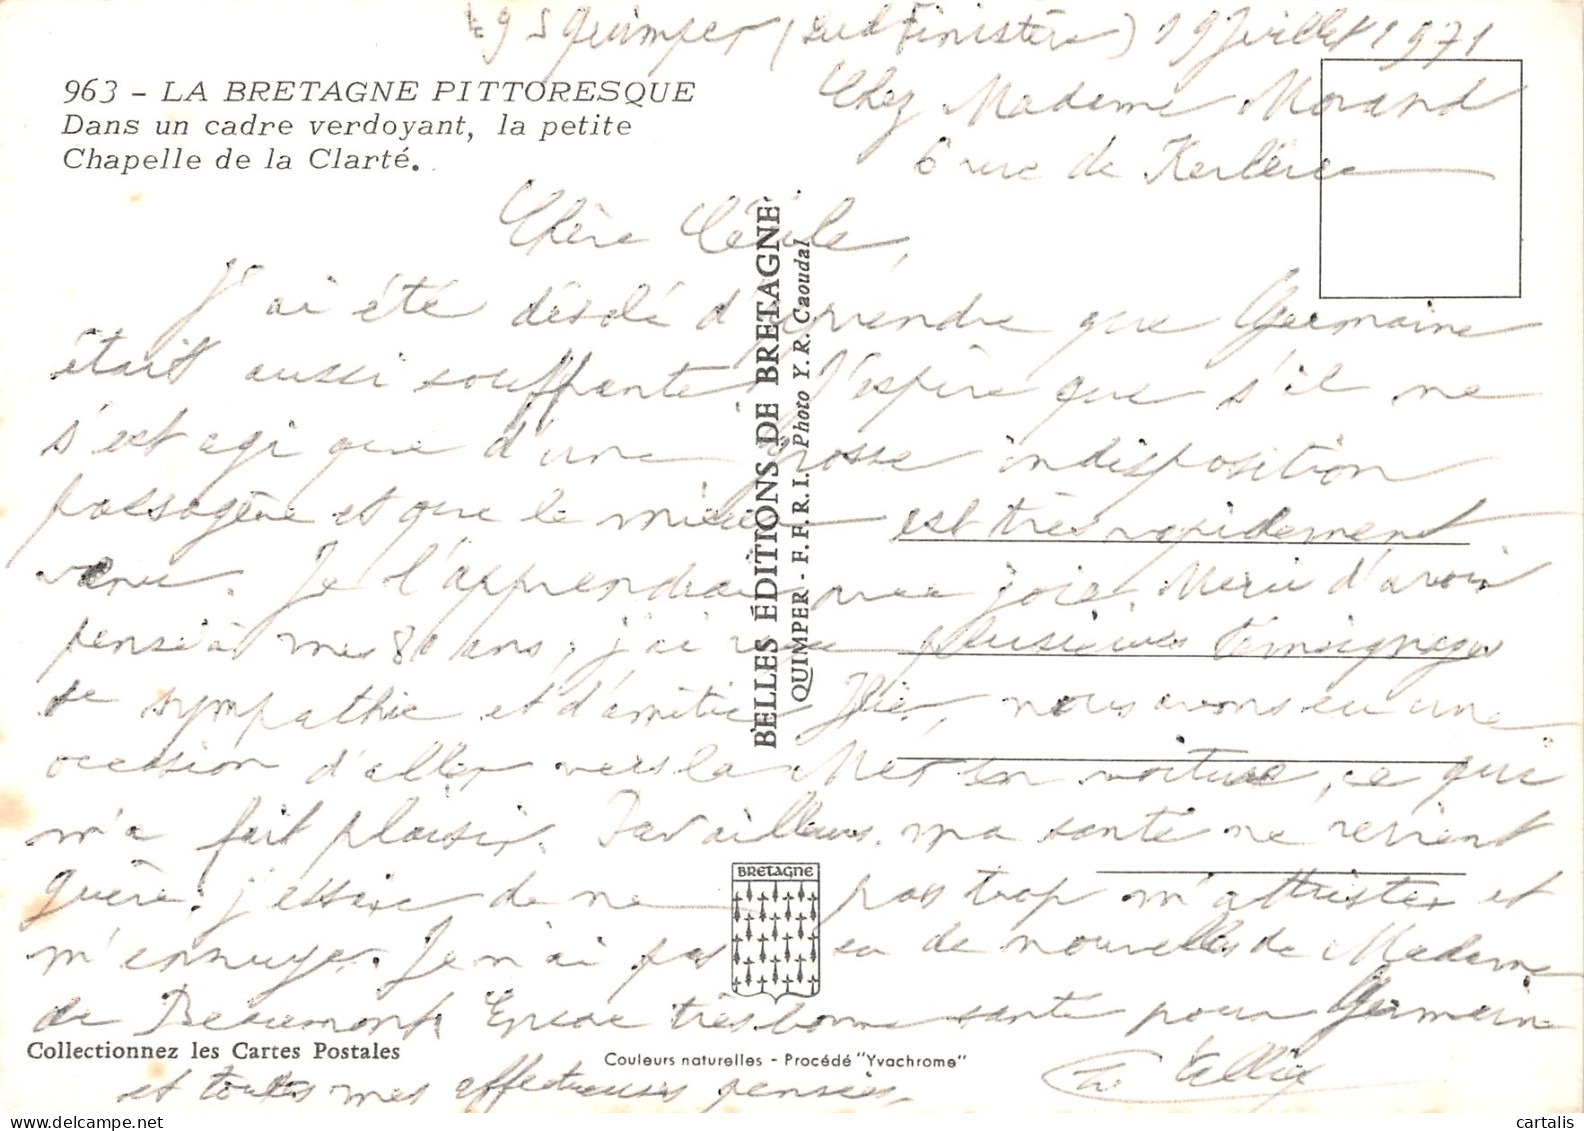 29 S Quimper (Sud Finistère) 19 Juillet 1971
Chez Madame Morand
6 rue de Kerlérec
963 - LA BRETAGNE PITTORESQUE
Dans un cadre verdoyant, la petite
Chapelle de la Clarté.
Chère Cécile,
J'ai été désolé d'apprendre que Germaine
était aussi souffrante. J'espère que s'il ne
s'est agi que d'une grosse indisposition
passagère et que le mieux est très rapidement
venu. Je l'apprendrai avec joie. Merci d'avoir
pensé à mes 80 ans, j'ai reçu plusieurs témoignages
de sympathie et d'amitié. Hier, nous avons eu une
occasion d'aller vers la Mer en voiture, ce qui
m'a fait plaisir. Par ailleurs, ma santé ne revient
guère. j'essaie de ne pas trop m'attrister et
m'ennuyer. Je n'ai pas eu de nouvelles de Madame
de Beaumont. Encore très bonne santé pour Germaine
et toutes mes affectueuses pensées.
BELLES ÉDITIONS DE BRETAGNE
QUIMPER - F.F.R.I. Photo Y.R. Caoudal
BRETAGNE
Collectionnez les Cartes Postales
Couleurs naturelles - Procédé "Yvachrome"
cartalis